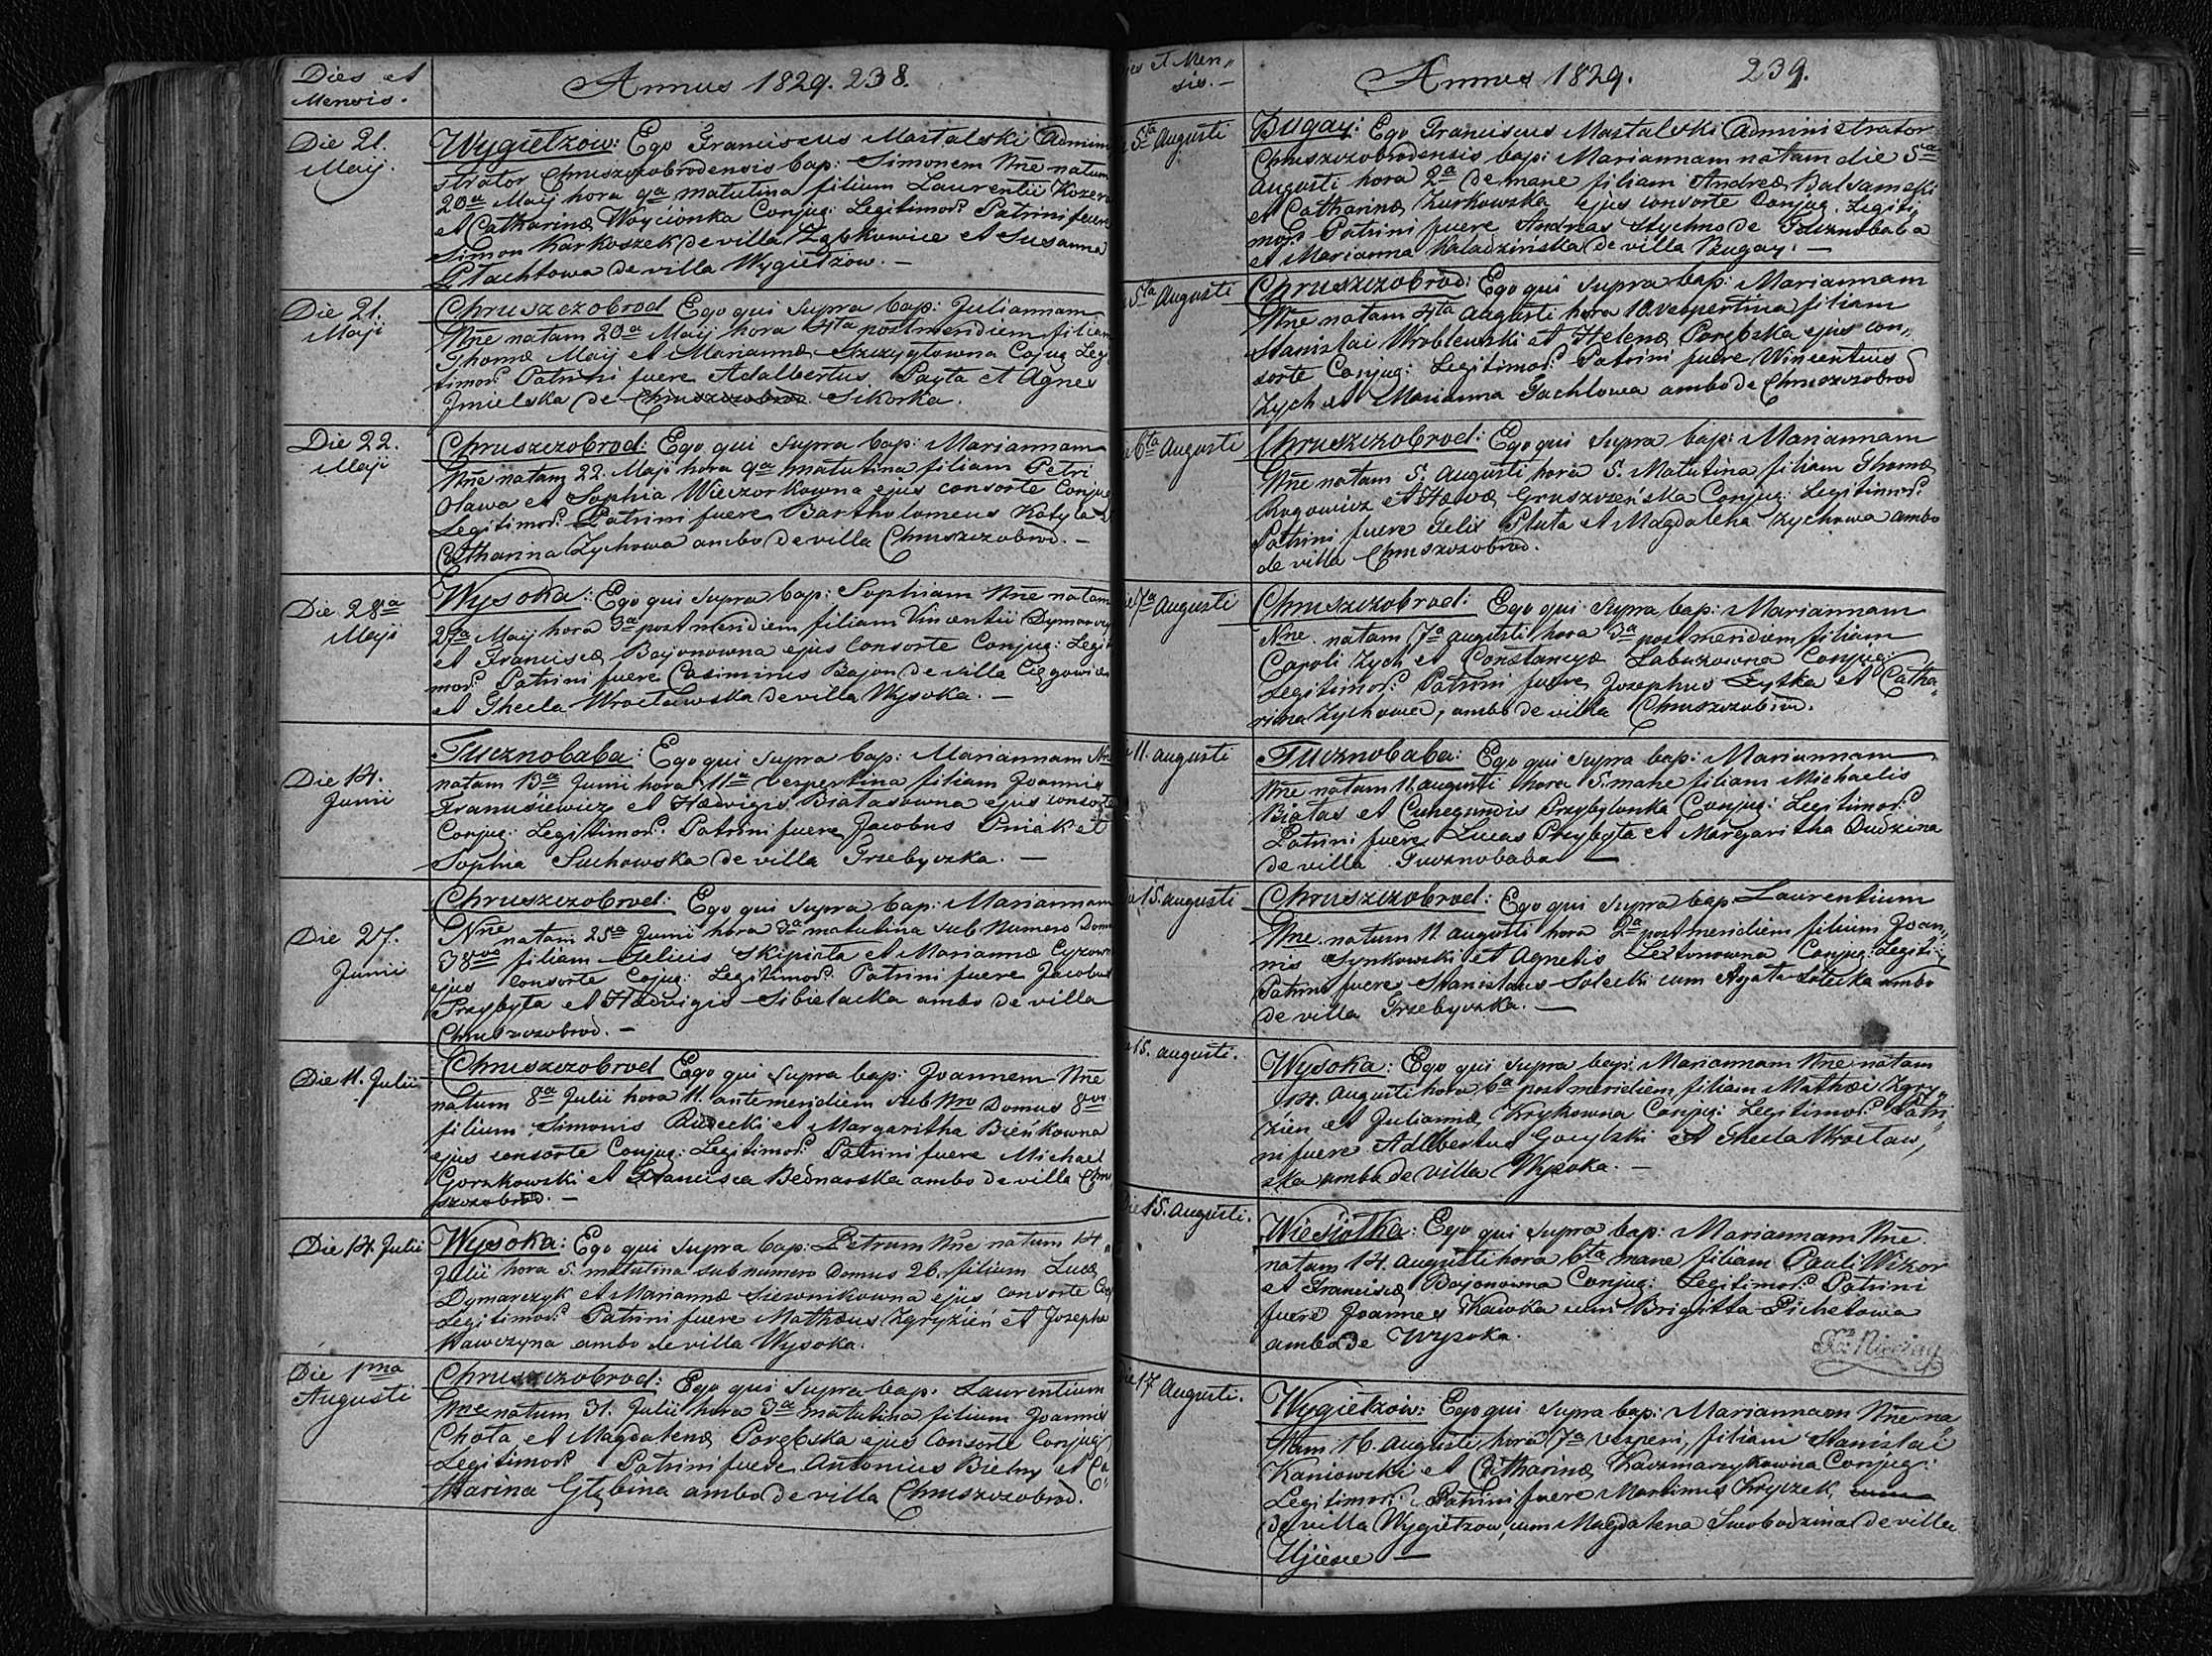 Dies et
Mensis.
Annus 1829. 238.
Die 21.
Maij.
Wygiełzow: Ego Franciscus Mastalski Admini
strator Chruszczobrodensis bap: Simonem Nne natum
20a Maij hora 9a matutina filium Laurentii Kozera
et Catharinæ Woycionka Conjug: Legitimor: Patrini fuere
Simon Karkoszek de villa Ząbkowice et Susanna
Płachtowa de villa Wygiełzow. —
Die 21.
Maji
Chruszczobrod Ego qui supra bap: Juliannam
Nne natam 20a Maij hora 4ta postmeridiem filiam
Thomæ Maij et Mariannæ Szczygłowna Cojug Legi
timor: Patrini fuere Adalbertus Payta et Agnes
Jmielska de Chruszczobrod Sikorka.
Die 22.
Maji
Chruszczobrod: Ego qui supra bap: Mariannam
Nne natam 22. Maji hora 9a matutina filiam Petri
Oława et Sophia Wieczorkowna ejus consorte Conjug
Legitimor: Patrini fuere Bartholomeus Kotyla
Catharina Zychowa ambo de villa Chruszczobrod. —
Die 28a
Maji
Wysoka: Ego qui supra bap: Sophiam Nne natam
27a Maij hora 3a post meridiem filiam Vincentii Dymarczy
et Franciscæ Bojonowna ejus Consorte Conjug: Legit
mor: Patrini fuere Casimirus Bajon de villa Cięgowice
et Thecla Wrocławska de villa Wysoka. —
Die 14.
Junii
Tucznobaba: Ego qui supra bap: Mariannam Nne
natam 13a Junii hora 11a Vespertina filiam Joannis
Franusiewicz et Hedvigis Białasowna ejus consorte
Conjug: Legitimor: Patrini fuere Jacobus Pniak et
Sophia Suchowska de villa Trzebyczka. —
Die 27.
Junii
Chruszczobrod: Ego qui supra bap: Mariannam
Nne natam 25a Junii hora 3a matutina sub Numero Dom
38vo filiam Felicis Skipirta et Mariannæ Cyzown
ejus consorte Cojug: Legitimor: Patrini fuere Jacobus
Przybyła et Hedvigis Sibielacka ambo de villa
Chruszczobrod. —
Die 11. Julii
Chruszczobrod Ego qui supra bap: Joannem Nne
natum 8a Julii hora 11. antemeridiem sub Nro Domus 8vo
filium Simonis Rudecki et Margaritha Bieńkowna
ejus consorte Conjug: Legitimor: Patrini fuere Michael
Gorzkowski et Francisca Bednarska ambo de villa Chru
szczobrod. —
Die 14. Julii
Wysoka: Ego qui supra bap: Petrum Nne natum 14
Julii hora 5. matutina sub numero Domus 26. filium Lucæ
Dymarczyk et Mariannæ Siewnikowna ejus consorte Conj
Legitimor: Patrini fuere Mathæus Zgryzień et Josepha
Wawczyna ambo de villa Wysoka.
Die 1ma
Augusti
Chruszczobrod: Ego qui supra bap: Laurentium
Nne natum 31. Julii hora 3a matutina filium Joannis
Chota et Magdalenæ Porębska ejus Consorte Conjug
Legitimor: Patrini fuere Antonius Bielny et Ca
tharina Głębina ambo de villa Chruszczobrod.
Dies et Men„
sis. —
Annus 1829. 239.
5ta Augusti
Bugay: Ego Franciscus Mastalski Administrator
Chruszczobrodensis bap: Mariannam natam die 5a
Augusti hora 2a de mane filiam Andreæ Balsamski
et Catharinæ Zurkowska ejus consorte Conjug. Legiti
mor: Patrini fuere Andreas Stychno de Tucznobaba
et Marianna Kaladzińska de villa Bugay. —
5ta Augusti
Chruszczobrod: Ego qui supra bap: Mariannam
Nne natam 4ta Augusti hora 10. vespertina filiam
Stanislai Wroblewski et Helenæ Porębska ejus con„
sorte Conjug: Legitimor: Patrini fuere Wincentius
Zych et Marianna Tachlowa ambo de Chruszczobrod
6ta Augusti
Chruszczobrod: Ego qui supra bap: Mariannam
Nne natam 5. Augusti hora 5. Matutina filiam Thomæ
Rogowicz et Hevæ Gruszczeńska Conjug: Legitimor:
Patrini fuere Felix Pluta et Magdalena Zychowa ambo
de villa Chruszczobrod.
7a Augusti
Chruszczobrod: Ego qui supra bap: Mariannam
Nne. natam 7a augusti hora 3a post meridiem filiam
Caroli Zych et Constancyæ Labuzowna Conjug:
Legitimor: Patrini fuere Josephus Zytka et Catha„
rina Zychowa, ambo de villa Chruszczobrod.
11. augusti
Tucznobaba: Ego qui supra bap: Mariannam
Nne natam 11. augusti hora 5. mane filiam Michaelis
Białas et Cunegundis Przybylonka Conjug: Legitimor:
Patrini fuere Lucas Przybyła et Margaritha Dudzina
de villa Tucznobaba —
15. augusti
Chruszczobrod: Ego qui supra bap Laurentium
Nne. natum 11 augusti hora 2a post meridiem filium Joan„
nis Synkowski et Agnetis Leztonowna Conjug: Legiti
Patrini fuere Stanislaus Solecki cum Agata Solecka ambo
de villa Trzebyczka. —
15. augusti.
Wysoka: Ego qui supra bap: Mariannam Nne natam
14. Augusti hora 6a post meridiem filiam Mathæi Zgry„
zien et Juliannæ Krykowna Conjug: Legitimor: Patri„
ni fuere Adalbertus Gocylski et Thecla Wrocław„
ska ambo de villa Wysoka. —
Die 15. Augusti.
Wiesiołka: Ego qui supra bap: Mariannam Nne.
natam 14. Augusti hora 6ta mane filiam Pauli Wikor
et Franciscæ Bojonowna Conjug: Legitimor: Patrini
fuere Joannes Kawka cum Brigitta Pichetowa
ambo de Wysoka.
Die 17 Augusti.
Wygiełzow: Ego qui supra bap: Mariannam Nne na
tam 16. Augusti hora 7a Vesperi, filiam Stanislai
Kaniowski et Catharinæ Kaczmarzykowna Conjug:
Legitimor: Patrini fuere Martinus Kryczek, cum
de villa Wygiełzow, cum Magdalena Swobodzina de villa
Ujiesce —